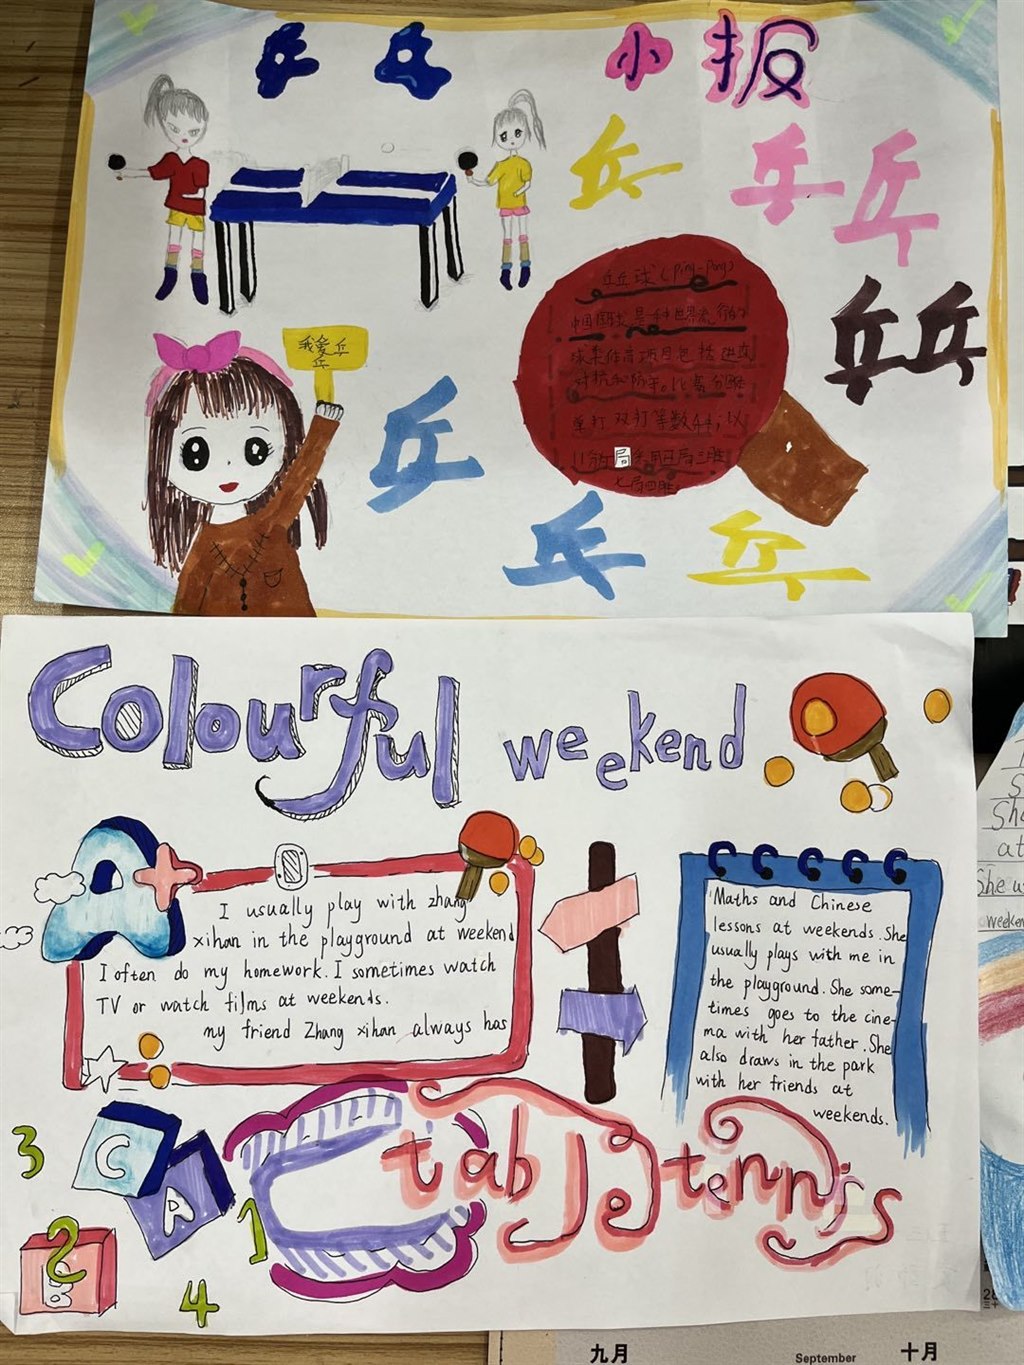 乒乓 小报
乒
乒乓
乒乓
我爱乒
乓
乒乓球(ping-pong)
中国国球,是一种世界流行的
球类体育项目包括进攻
对抗和防守。比赛分团
单打 双打等数种;以
11分一局
七局四胜。
乒
乓
乒
Colourful weekend
A+
I usually play with zhang
xihan in the playground at weekend
I often do my homework. I sometimes watch
TV or watch films at weekends.
my friend Zhang xihan always has
Maths and Chinese
lessons at weekends. She
usually plays with me in
the playground. She some-
times goes to the cine-
ma with her father. She
also draws in the park
with her friends at
weekends.
table tennis
3
C
A
1
2
B
4
She
at
weeken
九月 September 十月